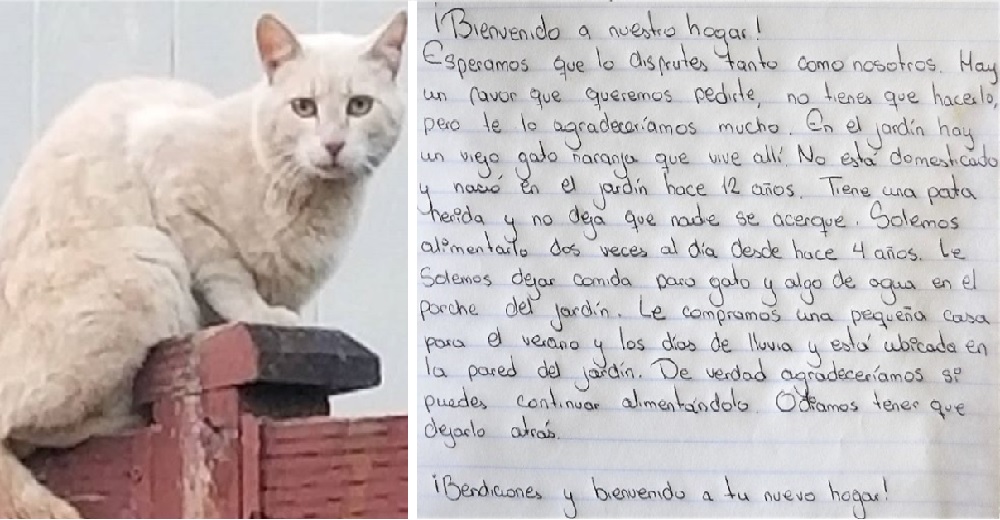 ¡Bienvenido a nuestro hogar!
Esperamos que lo disfrutes tanto como nosotros. Hay
un favor que queremos pedirte, no tienes que hacerlo,
pero te lo agradeceríamos mucho. En el jardín hay
un viejo gato naranja que vive allí. No está domesticado
y nació en el jardín hace 12 años. Tiene una pata
herida y no deja que nadie se acerque. Solemos
alimentarlo dos veces al día desde hace 4 años. Le
solemos dejar comida para gato y algo de agua en el
porche del jardín. Le compramos una pequeña casa
para el verano y los días de lluvia y está ubicada en
la pared del jardín. De verdad agradeceríamos si
puedes continuar alimentándolo. Odiamos tener que
dejarlo atrás.
¡Bendiciones y bienvenido a tu nuevo hogar!